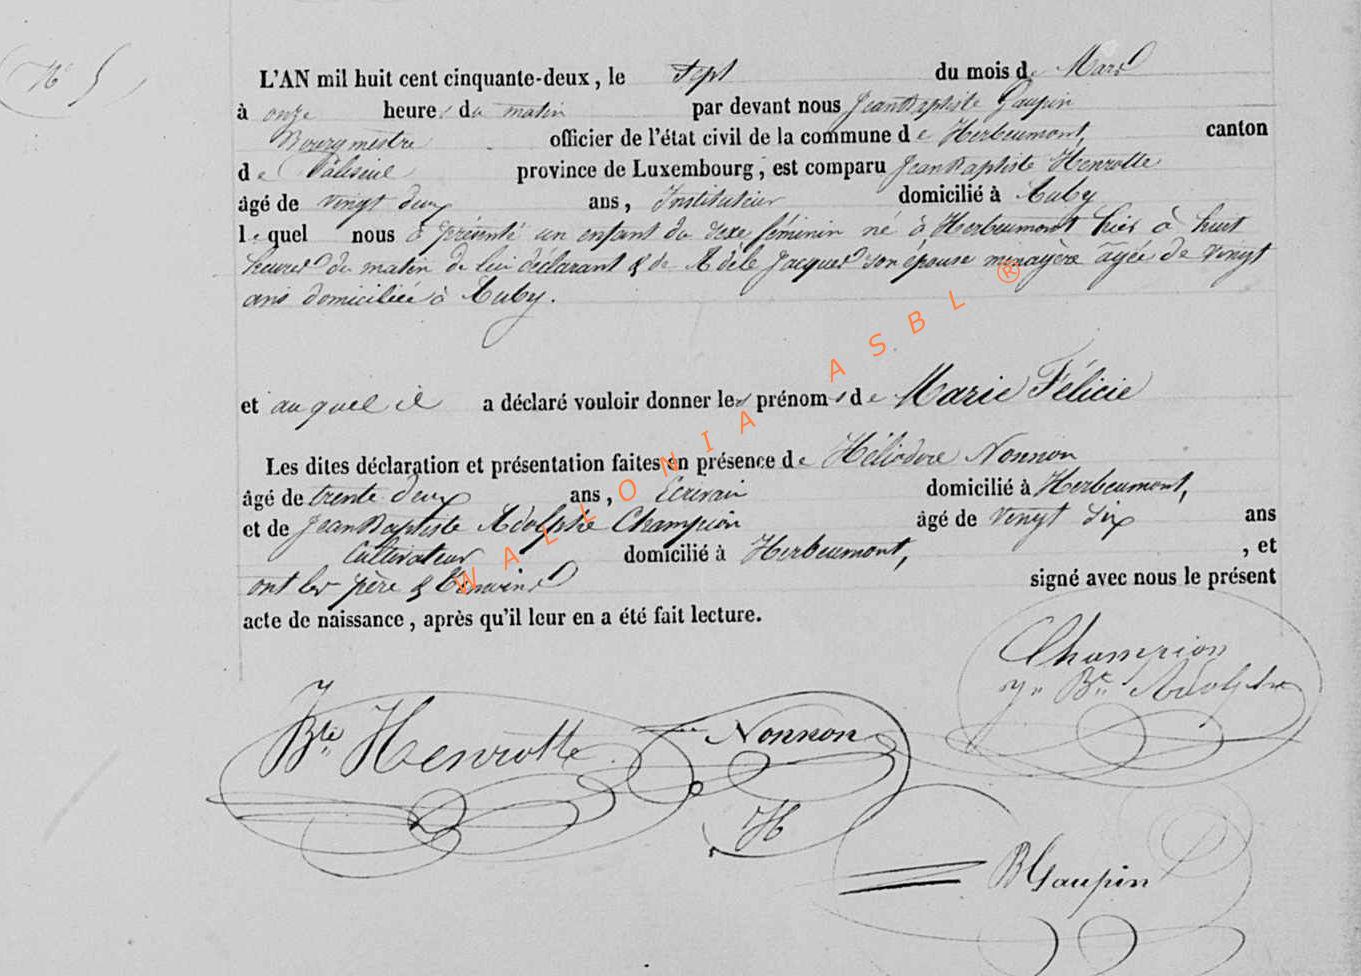 N° 5
L'AN mil huit cent cinquante-deux, le sept du mois de Mars
à onze heures du matin par devant nous Jean Baptiste Gaupin
Bourgmestre officier de l'état civil de la commune de Herbeumont, canton
de Paliseul province de Luxembourg, est comparu Jean Baptiste Henrotte
âgé de vingt deux ans, Instituteur domicilié à Cuby
lequel nous a présenté un enfant du sexe féminin né à Herbeumont hier à huit
heures du matin de lui déclarant & de Adèle Jacques son épouse ménagère agée de vingt
ans domiciliée à Cuby.
et auquel il a déclaré vouloir donner les prénoms de Marie Félicie
Les dites déclaration et présentation faites en présence de Héliodore Nonnon
âgé de trente deux ans, Ecrivain domicilié à Herbeumont,
et de Jean Baptiste Adolphe Champion âgé de vingt six ans
Cultivateur domicilié à Herbeumont, , et
ont les père & témoins signé avec nous le présent
acte de naissance, après qu'il leur en a été fait lecture.
Champion
Jn Bte Adolphe
J Bte Henrotte
Nonnon
H
B Gaupin
WALLONIA ASBL ®